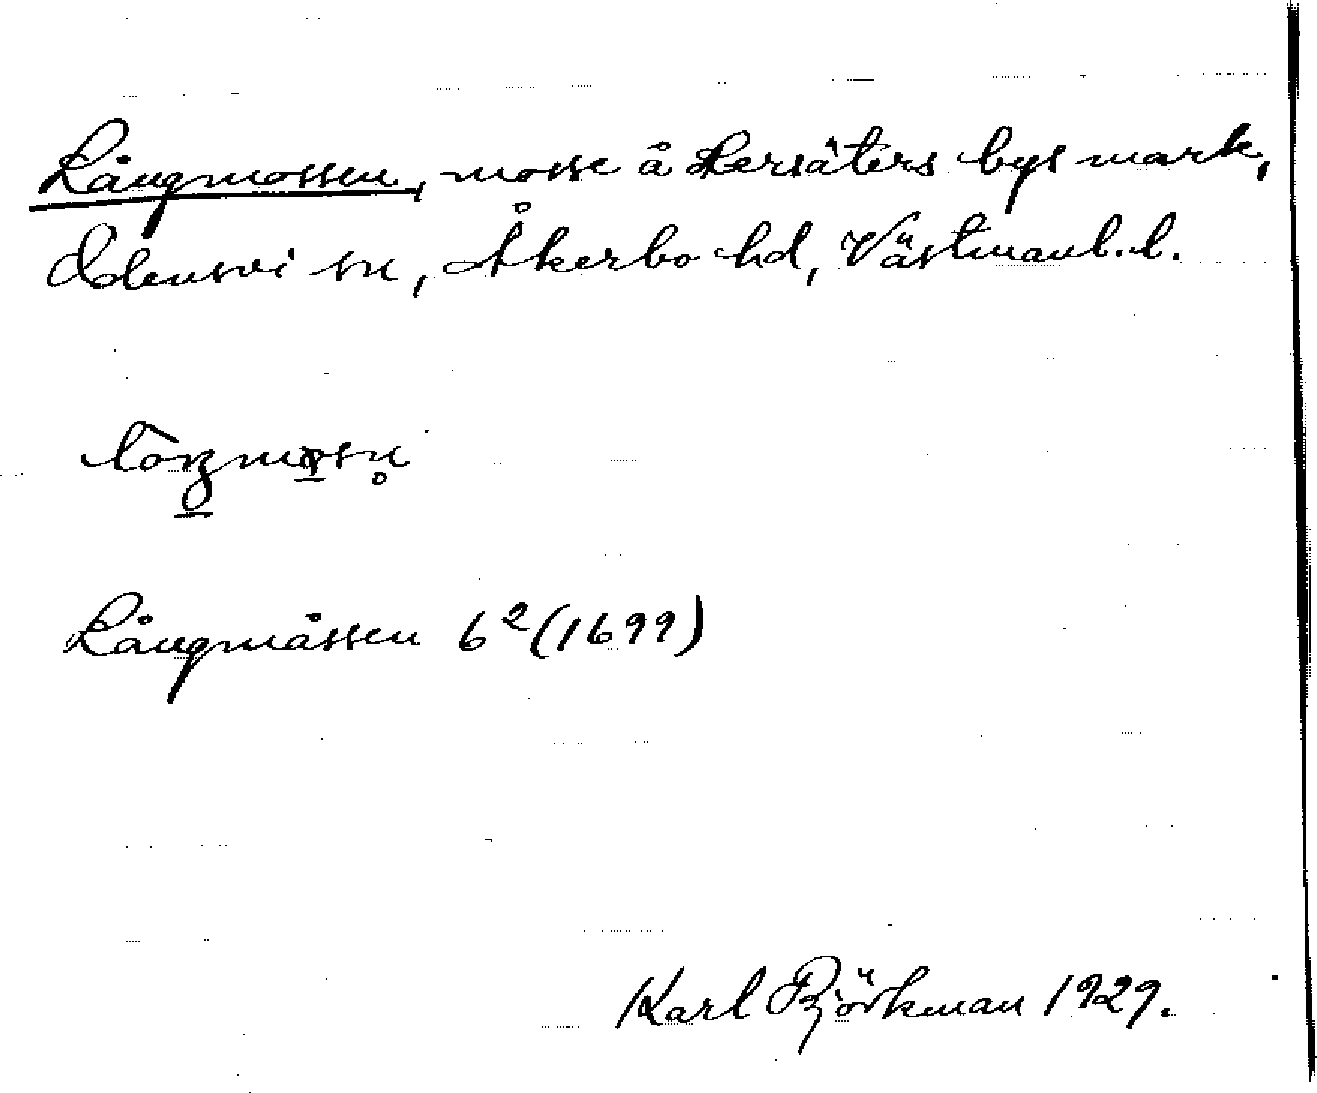 Långmossen, mosse å Lersäters bys mark,
Odensvi sn, Åkerbo hd, Västmanl. l.
Långmåssen 6² (1699)
Karl Björkman 1929.